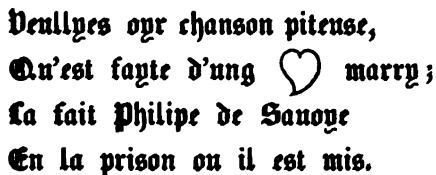 Veullyes oyr chanson piteuse,
Qu'est fayte d'ung ♡ marry;
La fait Philipe de Sauoye
En la prison ou il est mis.